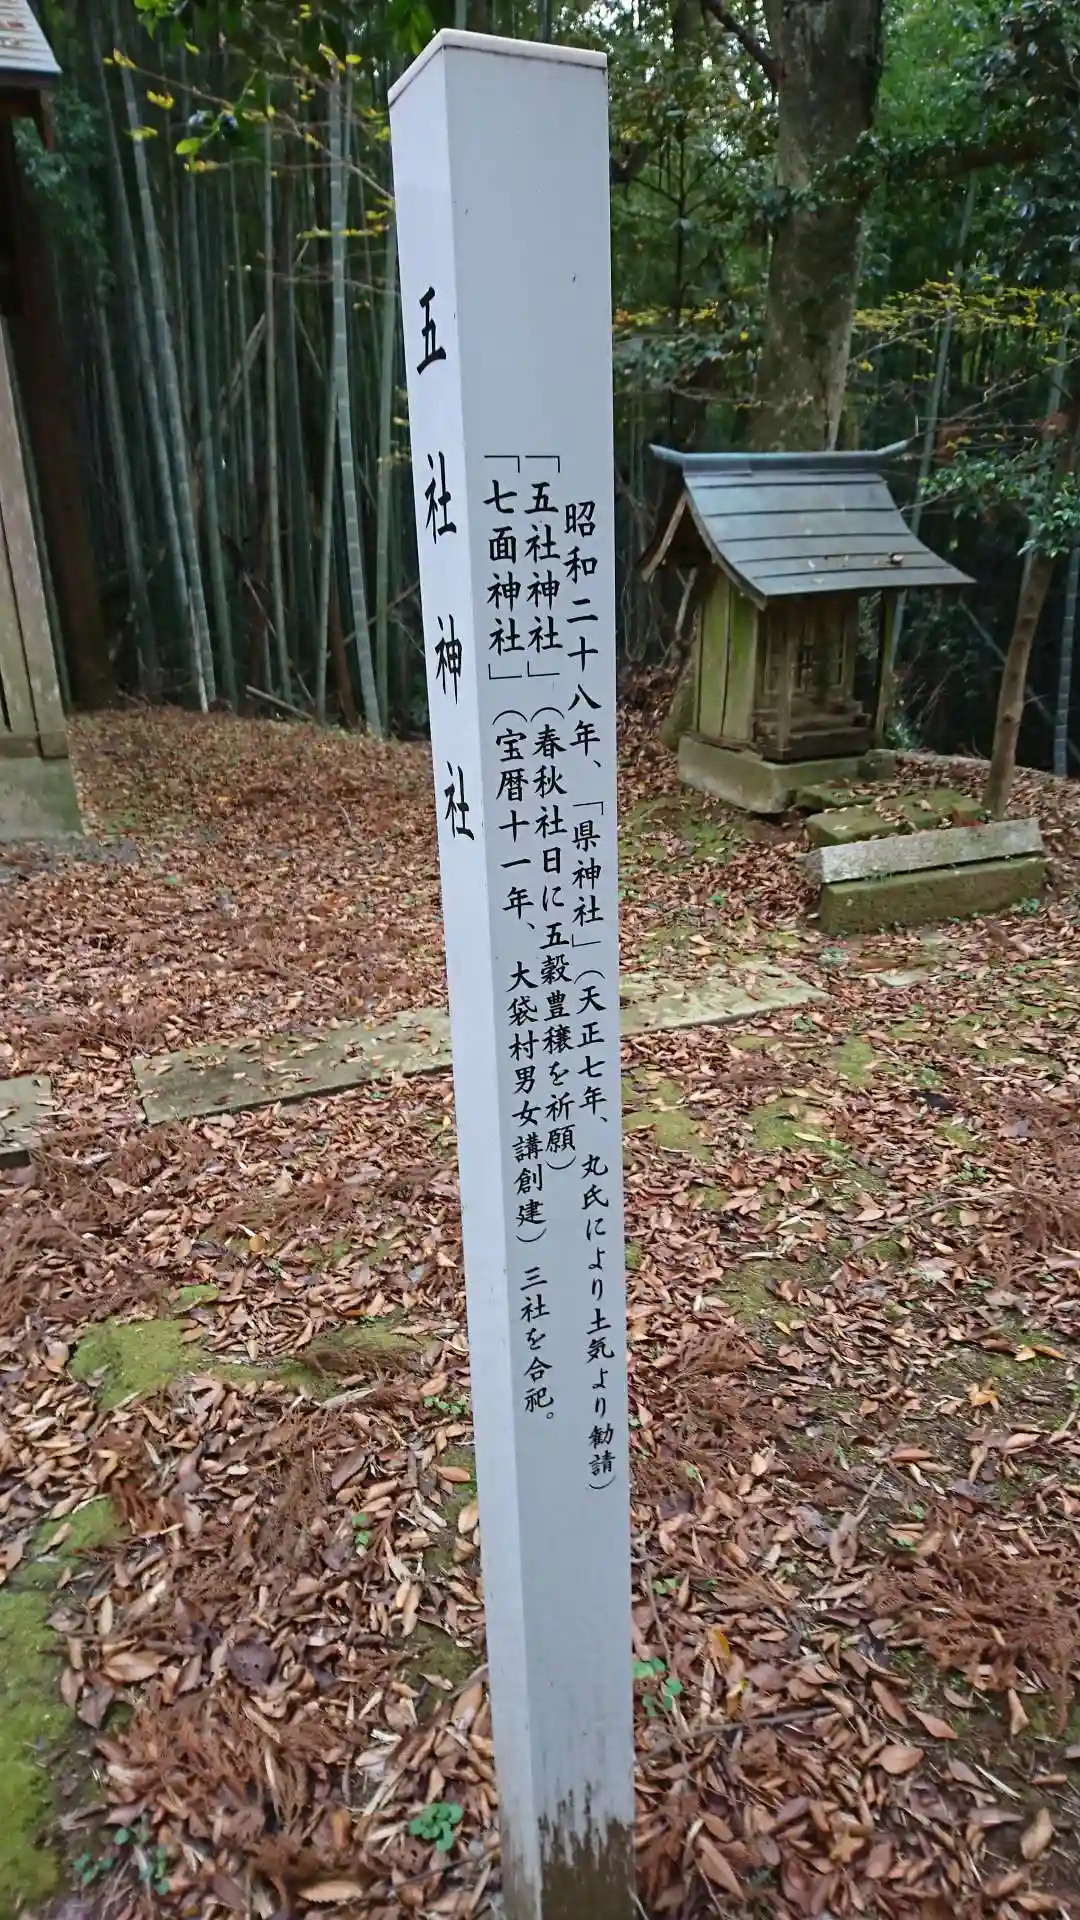 五社神社
昭和二十八年、「県神社」(天正七年、丸氏により土気より勧請)
「五社神社」(春秋社日に五穀豊穣を祈願)
「七面神社」(宝暦十一年、大袋村男女講創建)三社を合祀。